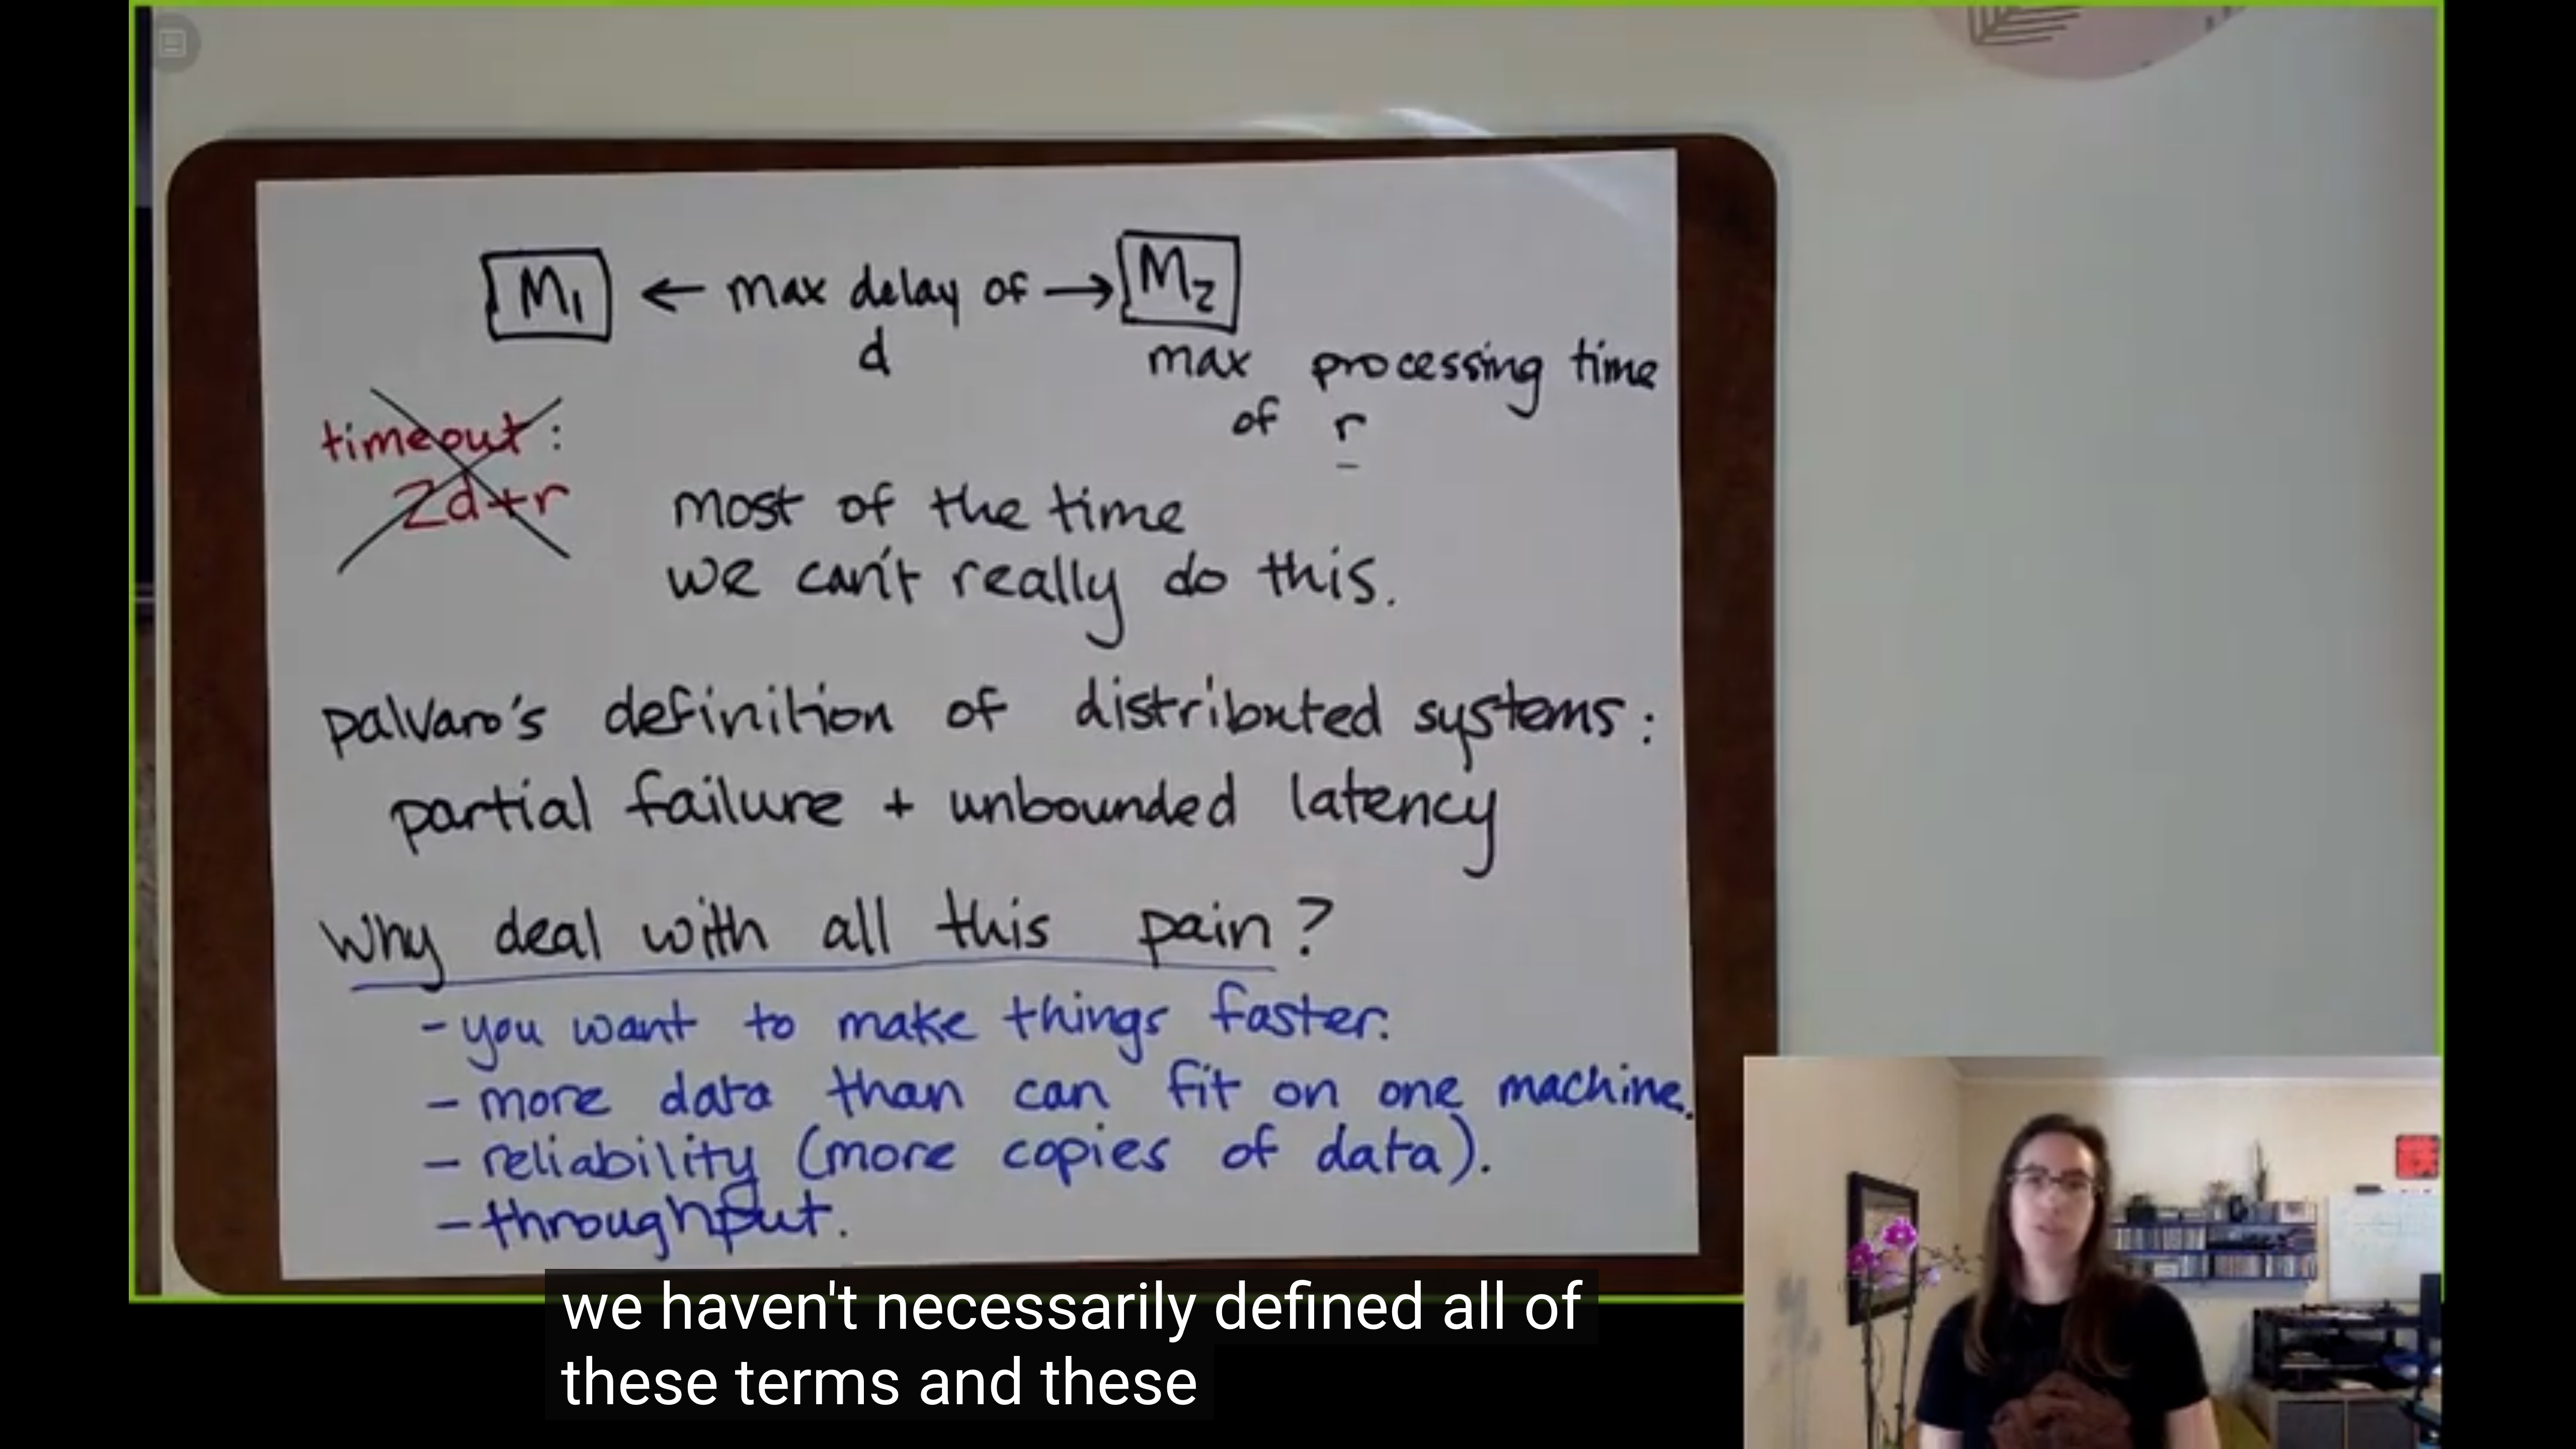 M1 ← max delay of → M2
d
max processing time
of r
timeout:
2d+r
most of the time
we can't really do this.
palvaro's definition of distributed systems:
partial failure + unbounded latency
Why deal with all this pain?
- you want to make things faster.
- more data than can fit on one machine.
- reliability (more copies of data).
- throughput.
we haven't necessarily defined all of
these terms and these